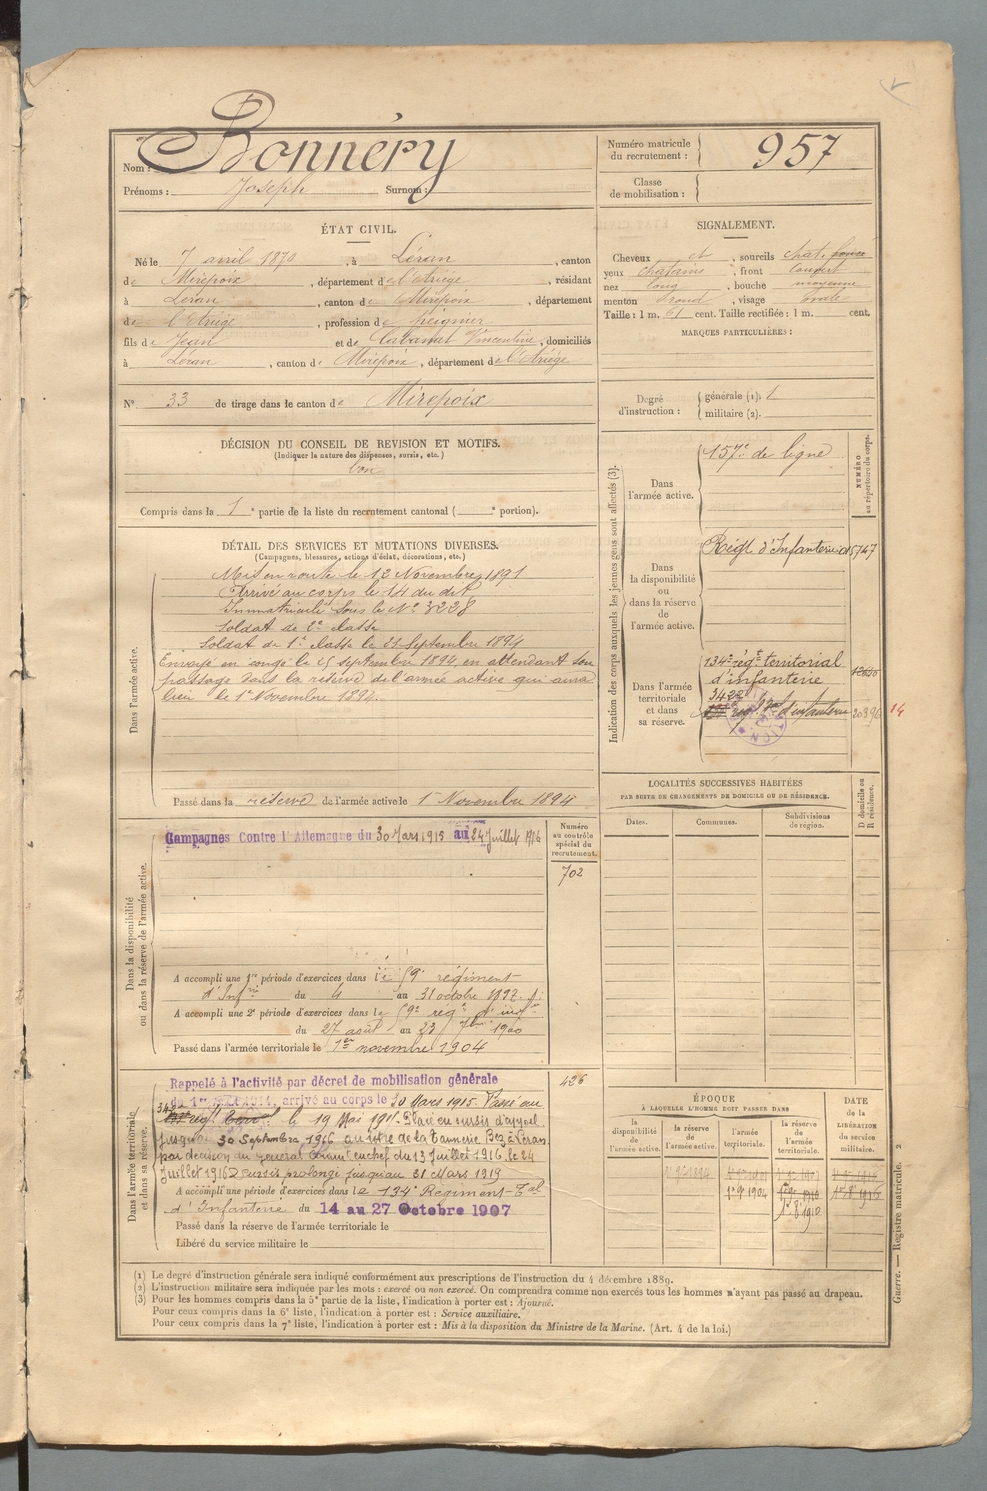 Nom : Bonnéry
Prénoms : Joseph Surnom :
Numéro matricule du recrutement : 957
Classe de mobilisation :
ÉTAT CIVIL.
Né le 7 avril 1870, à Léran, canton
de Mirepoix, département de l'Ariège, résidant
à Léran, canton de Mirepoix, département
de l'Ariège, profession de peignier
fils de Jean et de Cabanat Vincentine, domiciliés
à Léran, canton de Mirepoix, département de l'Ariège
N° 33 de tirage dans le canton de Mirepoix
DÉCISION DU CONSEIL DE REVISION ET MOTIFS.
(Indiquer la nature des dispenses, sursis, etc.)
bon
Compris dans la 1e partie de la liste du recrutement cantonal ( e portion).
SIGNALEMENT.
Cheveux et, sourcils chat. foncé
yeux chatains, front couvert
nez long, bouche moyenne
menton rond, visage ovale
Taille : 1 m. 61 cent. Taille rectifiée : 1 m. cent.
MARQUES PARTICULIÈRES :
Degré d'instruction : générale (1). 1
militaire (2).
DÉTAIL DES SERVICES ET MUTATIONS DIVERSES.
(Campagnes, blessures, actions d'éclat, décorations, etc.)
Dans l'armée active.
Mis en route le 12 Novembre 1891
Arrivé au corps le 14 du dit
Immatriculé sous le N° 3228
Soldat de 2e classe
Soldat de 1e classe le 25 Septembre 1894
Envoyé en congé le 25 septembre 1894, en attendant son
passage dans la réserve de l'armée active qui aura
lieu le 1er Novembre 1894.
Passé dans la réserve de l'armée active le 1er Novembre 1894
Indication des corps auxquels les jeunes gens sont affectés (3).
NUMÉRO au répertoire du corps.
Dans l'armée active.
157e de ligne
Dans la disponibilité ou dans la réserve de l'armée active.
Régt d'Infanterie
5747
Dans l'armée territoriale et dans sa réserve.
134e régt territorial
d'infanterie
342e
d'infanterie
20396
14
LOCALITÉS SUCCESSIVES HABITÉES
PAR SUITE DE CHANGEMENTS DE DOMICILE OU DE RÉSIDENCE.
Dates. Communes. Subdivisions de région. D domicile ou R résidence.
Dans la disponibilité ou dans la réserve de l'armée active.
Campagnes Contre l'Allemagne du 30 Mars 1915 au 24 Juillet 1916
Numéro au contrôle spécial du recrutement.
702
A accompli une 1re période d'exercices dans le 59e régiment
d'Infrie du 4 au 31 octobre 1897
A accompli une 2e période d'exercices dans le 59e régt d'infie
du 27 août au 23 7bre 1900
Passé dans l'armée territoriale le 1er novembre 1904
Dans l'armée territoriale et dans sa réserve.
426
Rappelé à l'activité par décret de mobilisation générale
du 1er 1914, arrivé au corps le 30 Mars 1915. Passé au
le 19 Mai 1915. Placé en sursis d'appel
jusqu'au 30 Septembre 1916 au titre de la Tannerie Bez à Léran
par décision du général Commt en chef du 13 Juillet 1916, le 24
Juillet 1916. Sursis prolongé jusqu'au 31 Mars 1919
A accompli une période d'exercices dans le 134e Régiment Tal
d'Infanterie du 14 au 27 Octobre 1907
Passé dans la réserve de l'armée territoriale le
Libéré du service militaire le
ÉPOQUE
À LAQUELLE L'HOMME DOIT PASSER DANS
la disponibilité de l'armée active.
la réserve de l'armée active.
l'armée territoriale.
la réserve de l'armée territoriale.
DATE de la LIBÉRATION du service militaire.
1er 9e 1894
1er 9e 1904
1er 9e 1910
1er 8e 1910
(1) Le degré d'instruction générale sera indiqué conformément aux prescriptions de l'instruction du 4 décembre 1889.
(2) L'instruction militaire sera indiquée par les mots : exercé ou non exercé. On comprendra comme non exercés tous les hommes n'ayant pas passé au drapeau.
(3) Pour les hommes compris dans la 5e partie de la liste, l'indication à porter est : Ajourné.
Pour ceux compris dans la 6e liste, l'indication à porter est : Service auxiliaire.
Pour ceux compris dans la 7e liste, l'indication à porter est : Mis à la disposition du Ministre de la Marine. (Art. 4 de la loi.)
Guerre. — Registre matricule. 2